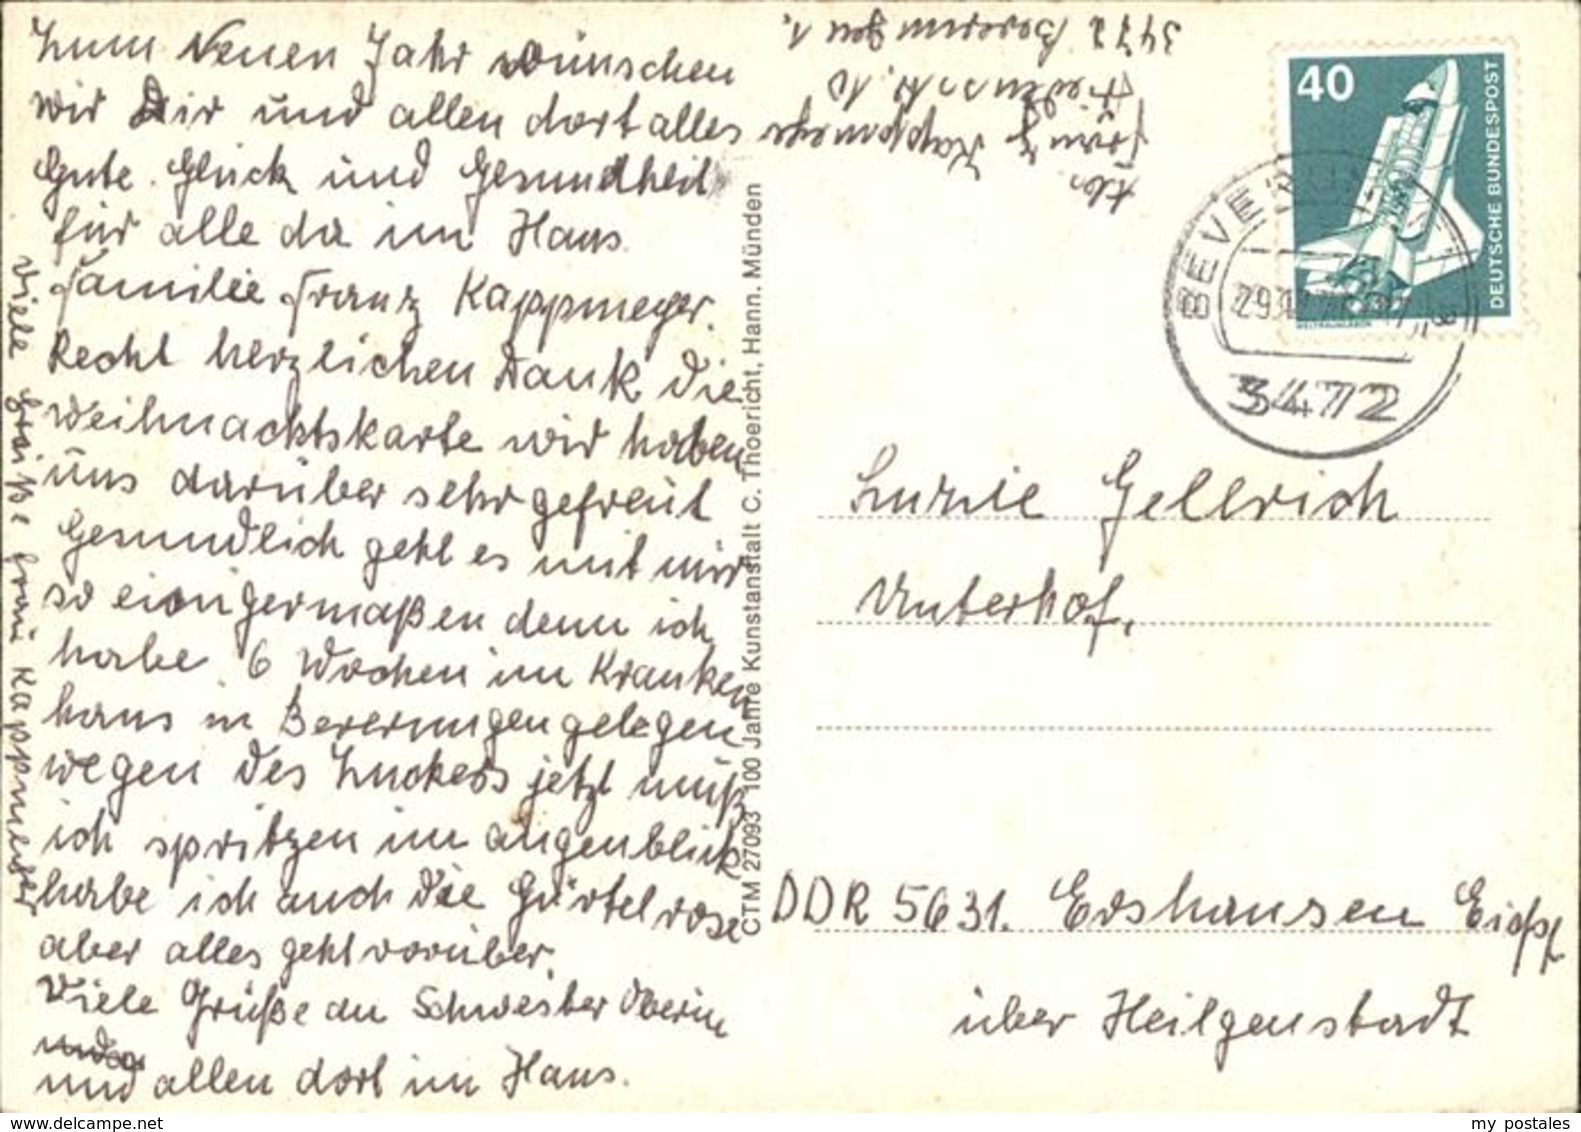 Zum Neuen Jahr wünschen
wir Dir und allen dort alles
Gute. Glück und Gesundheit
für alle da im Haus.
Familie Franz Kappmeyer.
Recht herzlichen Dank die
Weihnachtskarte wir haben
uns darüber sehr gefreut
Gesundlich geht es mit mir
so einigermaßen denn ich
habe 6 Wochen im Kranken
haus in Beverungen gelegen
wegen des Zuckers jetzt muß
ich spritzen im augenblick
habe ich auch die Gürtelrose
aber alles geht vorüber.
Viele Grüße an Schwester Oberin
und allen dort im Haus.
Viele Grüße Frau Kappmeyer
Abs.
Franz Kappmeyer
Friedensstr. 10
3472 Beverungen 1.
CTM 27093 100 Jahre Kunstanstalt C. Thoericht, Hann. Münden
40
DEUTSCHE BUNDESPOST
WELTRAUMLABOR
3472
Luzie Gellrich
Unterhof,
DDR 5631. Ershausen Eichsf
über Heilgenstadt
my postales
www.delcampe.net